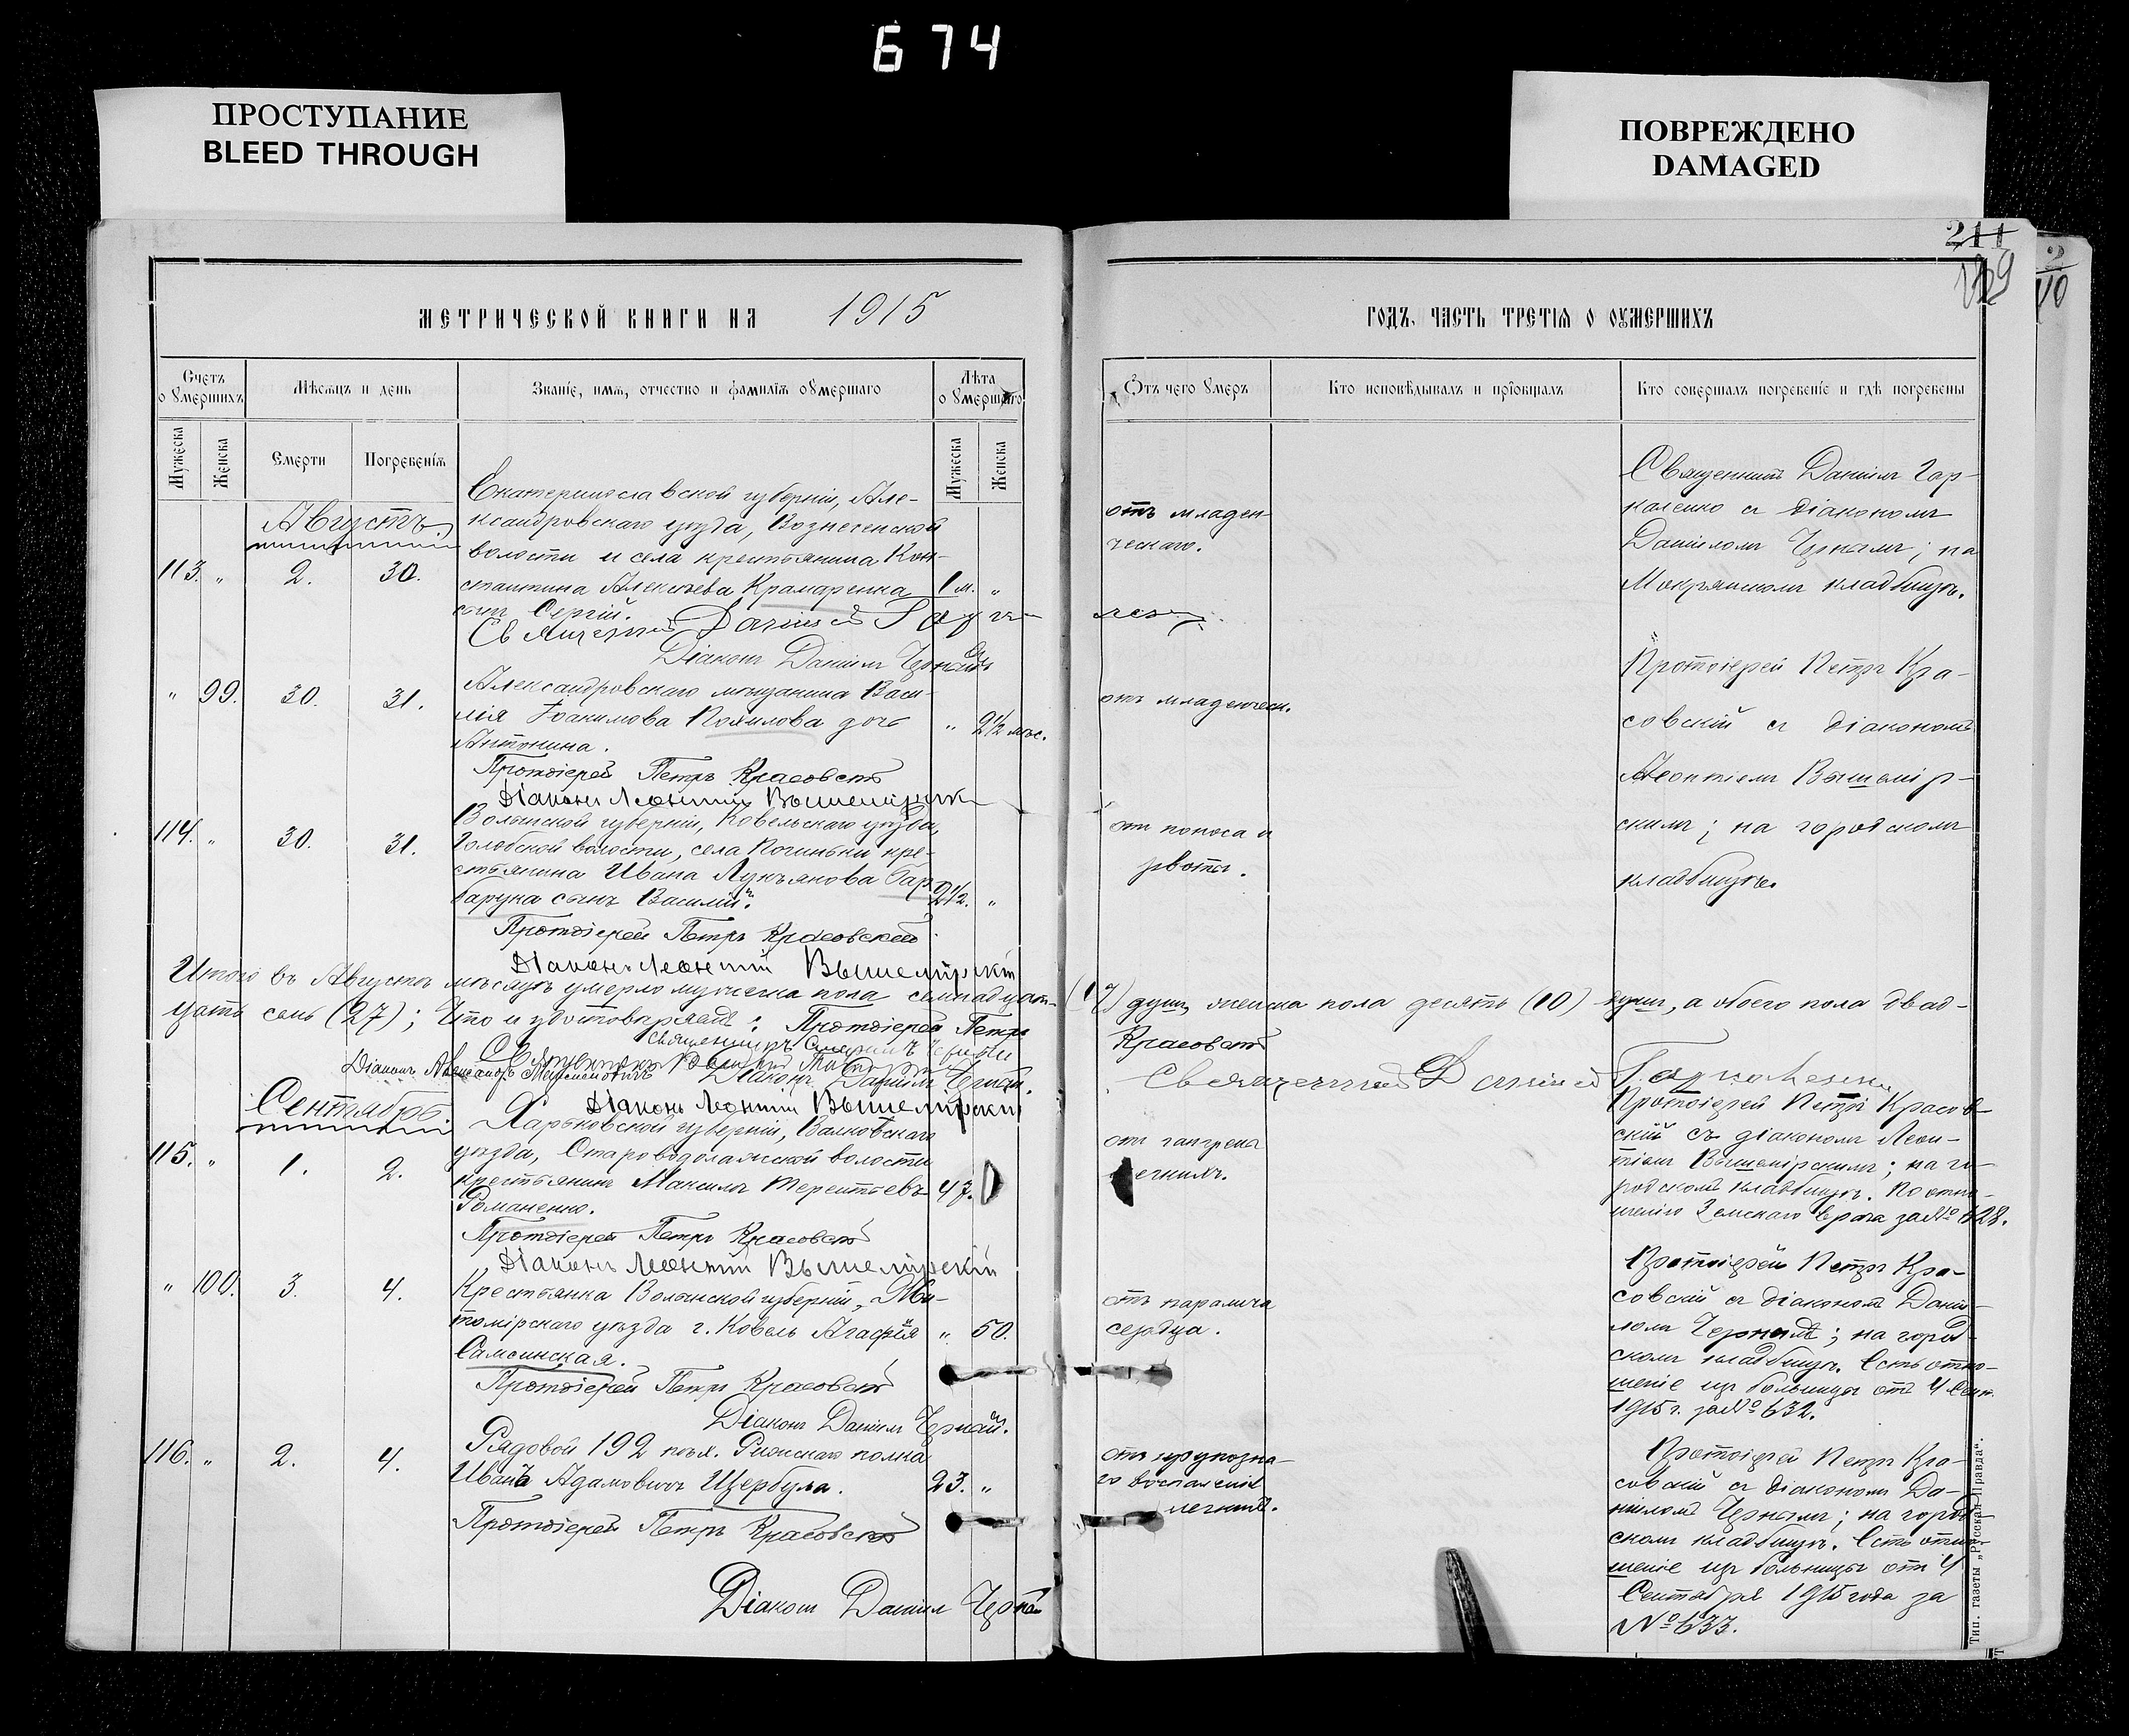 674
ПРОСТУПАНИЕ
BLEED THROUGH
ПОВРЕЖДЕНО
DAMAGED
211
2
110
МЕТРИЧЕСКОЙ КНИГИ НА 1915
ГОДЪ, ЧАСТЬ ТРЕТІЯ О ОУМЕРШИХЪ
Счетъ о умершихъ
Мѣсяцъ и день
Званіе, имя, отчество и фамилія оумершаго
Лѣта о умершаго
Мужеска
Женска
Смерти
Погребенія
Мужеска
Женска
Отъ чего умеръ
Кто исповѣдывалъ и пріобщалъ
Кто совершалъ погребеніе и гдѣ погребены
Августъ
113. „ 2. 30.
Екатеринославской губерніи, Але-
ксандровскаго уѣзда, Вознесенской
волости и села крестьянина Кон-
стантина Алексѣева Крамаренка
сынъ Сергій.
1 м. „
Священникъ Даніилъ
Діаконъ Даніилъ Чернай
отъ младен-
ческаго.
Священникъ Даніилъ Гар-
каленко съ діакономъ
Даніиломъ
на
Мокрянскомъ кладбищѣ.
„ 99. 30. 31.
Александровскаго мѣщанина Васи-
лія Іоакимова дочь
Антонина.
„ 2½ мѣс.
Протоіерей Петръ Красовскій
Діаконъ Леонтій Вышемірскій
отъ младенческ.
Протоіерей Петръ Кра-
совскій съ діакономъ
Леонтіемъ Вышемір-
скимъ; на городскомъ
кладбищѣ.
114. „ 30. 31.
Волынской губерніи, Ковельскаго уѣзда,
Голобской волости, села кре-
стьянина Ивана Лукьянова Бар-
барука сынъ Василій.
2½. „
Протоіерей Петръ Красовскій
Діаконъ Леонтій Вышемірскій
отъ поноса и
рвоты.
Итого въ Августѣ мѣсяцѣ умерло мужеска пола семнадцать (17) душъ, женска пола десять (10) душъ, а обоего пола двад-
цать семь (27); Что и удостовѣряемъ: Протоіерей Петръ Красовскій
Священникъ
Діаконъ Даніилъ Чернай
Священникъ Даніилъ Гаркаленко
Діаконъ Леонтій Вышемірскій
Сентябрь.
115. „ 1. 2.
Харьковской губерніи, Валковскаго
уѣзда, Староводолажской волости
крестьянинъ Максимъ Терентьевъ
Романенко.
47.
Протоіерей Петръ Красовскій
Діаконъ Леонтій Вышемірскій
отъ гангрены
легкихъ.
Протоіерей Петръ Красов-
скій съ діакономъ Леон-
тіемъ Вышемірскимъ; на го-
родскомъ кладбищѣ. По отно-
шенію Земскаго врача за №
„ 100. 3. 4.
Крестьянка Волынской губерніи, Жи-
томірскаго уѣзда г. Ковель Агафія
Самсинская.
„ 50.
Протоіерей Петръ Красовскій
Діаконъ Даніилъ Чернай.
отъ паралича
сердца.
Протоіерей Петръ Кра-
совскій съ діакономъ Даніи-
ломъ на город-
скомъ кладбищѣ. Есть отно-
шеніе изъ больницы отъ 4 Сент.
1915 г. за № 632.
116. „ 2. 4.
Рядовой 192 пѣх. полка
Иванъ Адамовичъ Щербула.
23. „
Протоіерей Петръ Красовскій
Діаконъ Даніилъ Чернай
отъ крупозна-
го воспаленія
легкихъ.
Протоіерей Петръ Кра-
совскій съ діакономъ Да-
ніиломъ на город-
скомъ кладбищѣ. Есть отно-
шеніе изъ больницы отъ 4
Сентября 1915 года за
№ 633.
Тип. газеты „Русская Правда“.